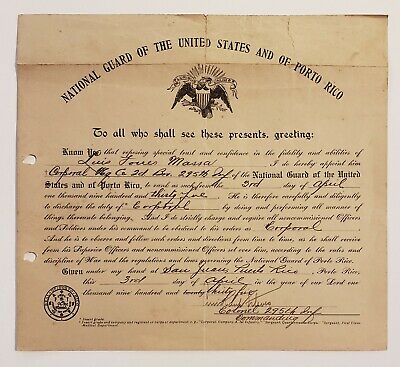 NATIONAL GUARD OF THE UNITED STATES AND OF PORTO RICO
To all who shall see these presents, greeting:
Know Ye, that reposing special trust and confidence in the fidelity and abilities of
Luis Torres Massa I do hereby appoint him
Corporal Hq Co 2d Bn. 295th Inf. of the National Guard of the United
States and of Porto Rico, to rank as such from the 3rd day of April
one thousand nine hundred and thirty five He is therefore carefully and diligently
to discharge the duty of Corporal by doing and performing all manner of
things thereunto belonging. And I do strictly charge and require all noncommissioned Officers
and Soldiers under his command to be obedient to his orders as Corporal
And he is to observe and follow such orders and directions from time to time, as he shall receive
from his Superior Officers and noncommissioned Officers set over him, according to the rules and
discipline of War and the regulations and laws governing the National Guard of Porto Rico.
Given under my hand at San Juan Puerto Rico, Porto Rico,
this 3rd day of April in the year of our Lord one
thousand nine hundred and twenty thirty five
Colonel 295th Inf
Commanding
Insert grade.